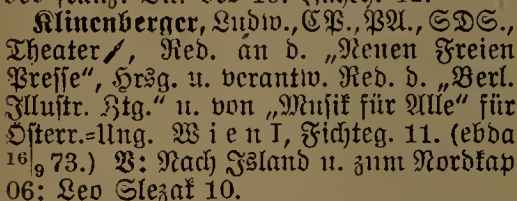 Klinenberger, Ludw., CP., PA., SDS.,
Theater, Red. an d. „Neuen Freien
Presse“, Hrsg. u. verantw. Red. d. „Berl.
Illustr. Ztg.“ u. von „Musik für Alle“ für
Österr.=Ung. Wien I, Fichteg. 11. (ebda
16|9 73.) V: Nach Island u. zum Nordkap
06; Leo Slezak 10.